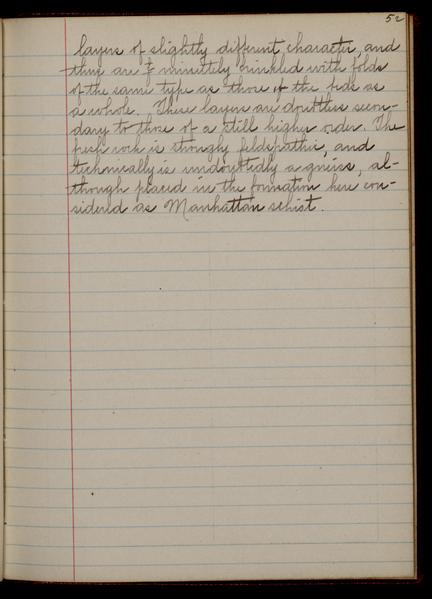 52
layers of slightly different character, and
they are minutely crinkled with folds
of the same type as those of the beds as
a whole. These layers are doubtless secon-
dary to those of a still higher order. The
fresh rock is strongly feldspathic, and
technically is undoubtedly a gneiss, al-
though placed in the formation here con-
sidered as Manhattan schist.